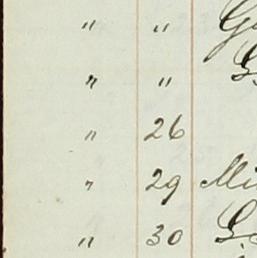 " "
" "
" 26
" 29 Mi
" 30